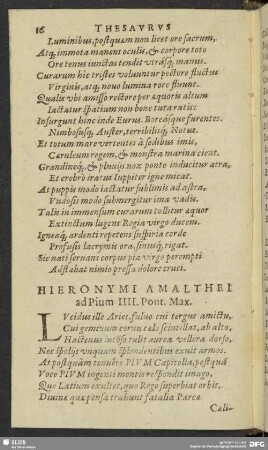 16 THESAVRVS
Luminibus, postquam non licet ore sacrum,
Atq́; immota manens oculis, & corpore toto
Ore tenus iunctas tendit vtrasq́; manus.
Curarum hic tristes voluuntur pectore fluctus
Virginis, atq́; nouo lumina rore fluunt.
Qualis vbi amisso rectore per æquora altum
Iactatur spatium non bene tuta ratis:
Insurgunt hinc inde Eurus, Boreasque furentes.
Nimbosusq́; Auster, terribilisq́; Notus.
Et totum mare vertentes à sedibus imis,
Cæruleum regem, & monstra marina cient.
Grandineq́; & pluuijs nox ponto inducitur atra,
Et crebrò iratus Iuppiter igne micat.
At puppis modo iactatur sublimis ad astra,
Vndosis modo submergitur ima vadis.
Talis in immensum curarum tollitur æquor
Extinctum lugens Regia virgo ducem.
Igneaq́; ardenti repetens suspiria corde
Profusis lacrymis ora, sinusq́; rigat.
Sic nati seruans corpus pia virgo perempti
Adstabat nimio pressa dolore cruci.
HIERONYMI AMALTHEI
ad Pium IIII. Pont. Max.
LVcidus ille Aries, fuluo cui tergus amictu,
Cui geminum cornu cælo scintillat, ab alto,
Hactenus intõso tulit aurea vellera dorso,
Nec spolijs vnquam splendentibus exuit armos.
At postquàm tenuêre PIVM Capitolia, postquã
Voce PIVM ingenti montis respondit imago,
Quo Latium exultet, quo Rege superbiat orbis,
Diuinæ quæ pensa trahunt fatalia Parcæ
Cæli-
SLUB